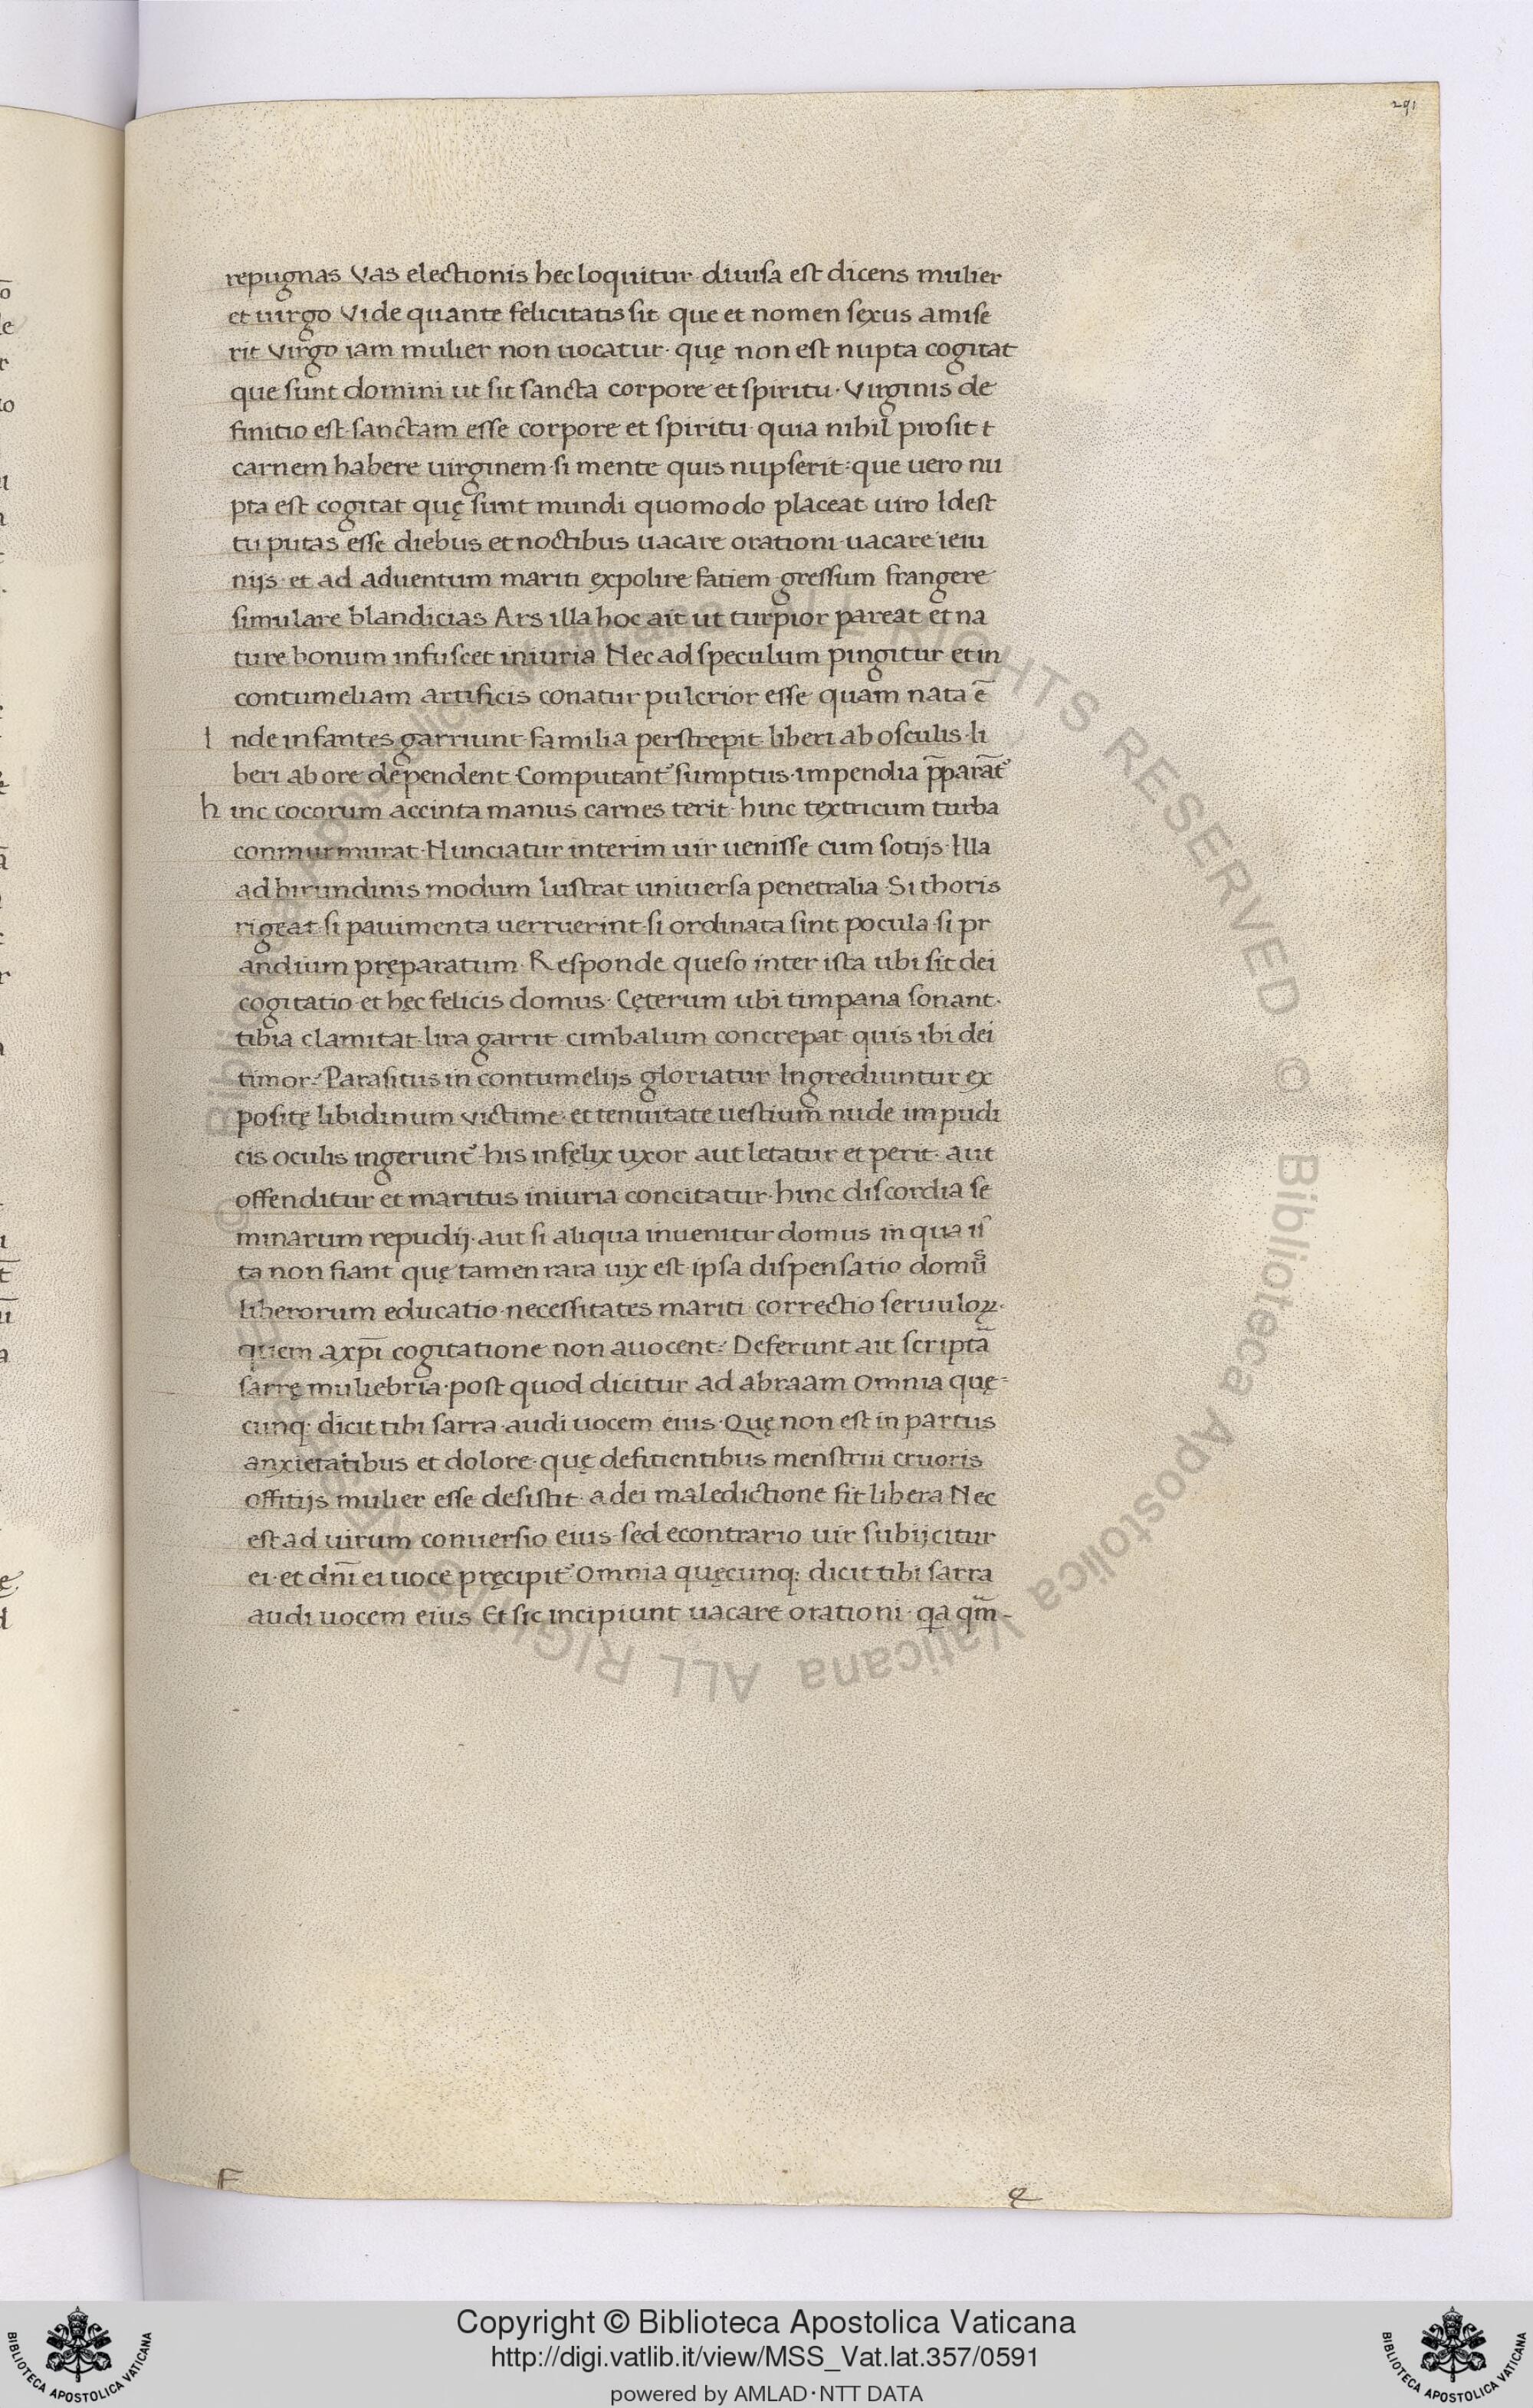 291
repugnas Vas electionis hec loquitur· diuisa est dicens mulier
et uirgo Vide quante felicitatis sit que et nomen sexus amise
rit Virgo iam mulier non uocatur· quę non est nupta cogitat
que sunt domini ut sit sancta corpore et spiritu· Virginis de
finitio est· sanctam esse corpore et spiritu quia nihil prosit t
carnem habere uirginem· si mente quis nupserit· que uero nu
pta est cogitat quę sunt mundi quomodo placeat uiro Idest
tu putas esse diebus et noctibus uacare orationi uacare ieiu
nijs· et ad aduentum mariti expolire fatiem· gressum frangere
simulare blandicias Ars illa hoc ait ut turpior pareat et na
ture bonum infuscet iniuria Nec ad speculum pingitur et in
contumeliam artificis conatur pulcrior esse quam nata ē
I nde infantes garriunt· familia perstrepit· liberi ab osculis· li
beri ab ore dependent· Computant᷒ sumptus· impendia p̄parāt᷒
h inc cocorum accinta manus carnes terit· hinc textricum turba
conmurmurat· Nunciatur interim uir uenisse cum sotijs· Illa
ad hirundinis modum lustrat uniuersa penetralia· Si thoris
rigeat· si pauimenta uerruerint· si ordinata sint pocula· si pr
andium pręparatum· Responde queso inter ista ubi sit dei
cogitatio· et hęc felicis domus· Cęterum ubi timpana sonant·
tibia clamitat· lira garrit· cimbalum concrepat· quis ibi dei
timor·' Parasitus in contumelijs gloriatur Ingrediuntur ex
positę libidinum victime· et tenuitate uestium nude impudi
cis oculis ingerunt᷒· his infęlix uxor aut letatur et perit· aut
offenditur et maritus iniuria concitatur· hinc discordia se
minarum repudij· aut si aliqua inuenitur domus in qua is
ta non fiant quę tamen rara uix est ipsa dispensatio domus
liberorum educatio· necessitates mariti· correctio seruuloꝝ·
quem a xp̄i cogitatione non auocent·' Deferunt ait scriptā
sarrę muliebria· post quod dicitur ad abraam Omnia quę-
cunq· dicit tibi sarra· audi uocem eius· Quę non est in partus
anxietatibus et dolore· quę defitientibus menstrui cruoris
offitijs mulier esse desistit· a dei maledictione fit libera Nec
est ad uirum conuersio eius· sed econtrario uir subijcitur
ei· et dn̄i ei uoce pręcipit᷒ Omnia quęcunq: dicit tibi sarra
audi uocem eius Et sic incipiunt uacare orationi· qa qm̄-
© Biblioteca Apostolica Vaticana ALL RIGHTS RESERVED
Copyright © Biblioteca Apostolica Vaticana
http://digi.vatlib.it/view/MSS_Vat.lat.357/0591
powered by AMLAD·NTT DATA
BIBLIOTECA APOSTOLICA VATICANA
BIBLIOTECA APOSTOLICA VATICANA